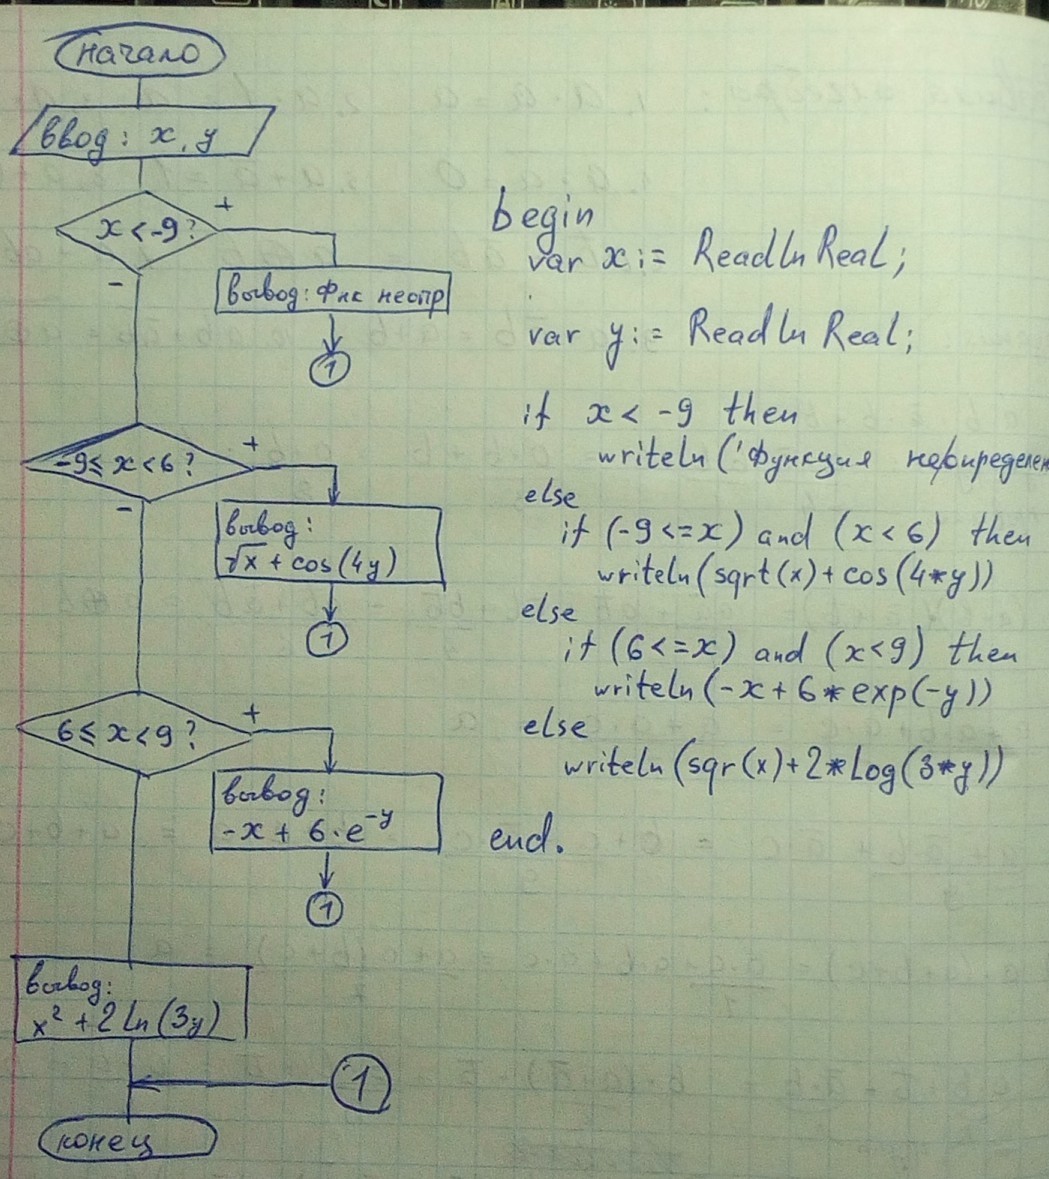 начало
ввод: x, y
x < -9?
+
-
вывод: Фнк неопр
1
-9 ≤ x < 6?
+
-
вывод:
√x + cos(4y)
1
6 ≤ x < 9?
+
вывод:
-x + 6·e^-y
1
вывод:
x² + 2 ln(3y)
1
конец
begin
var x := ReadlnReal;
var y := ReadlnReal;
if x < -9 then
writeln('Функция
else
if (-9 <= x) and (x < 6) then
writeln(sqrt(x) + cos(4*y))
else
if (6 <= x) and (x < 9) then
writeln(-x + 6*exp(-y))
else
writeln(sqr(x) + 2*Log(3*y))
end.